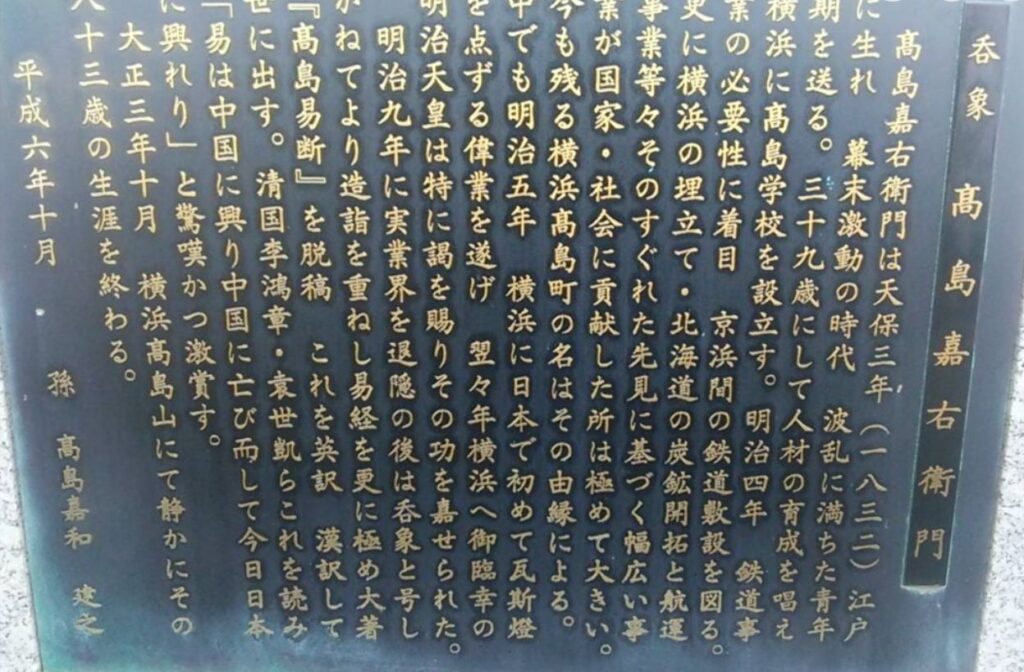 呑象 髙島嘉右衛門
髙島嘉右衛門は天保三年(一八三二)江戸
に生れ 幕末激動の時代 波乱に満ちた青年
期を送る。三十九歳にして人材の育成を唱え
横浜に髙島学校を設立す。明治四年 鉄道事
業の必要性に着目 京浜間の鉄道敷設を図る。
更に横浜の埋立て・北海道の炭鉱開拓と航運
事業等々そのすぐれた先見に基づく幅広い事
業が国家・社会に貢献した所は極めて大きい。
今も残る横浜髙島町の名はその由縁による。
中でも明治五年 横浜に日本で初めて瓦斯燈
を点ずる偉業を遂げ 翌々年横浜へ御臨幸の
明治天皇は特に謁を賜りその功を嘉せられた。
明治九年に実業界を退隠の後は呑象と号し
かねてより造詣を重ねし易経を更に極め大著
『髙島易断』を脱稿 これを英訳 漢訳して
世に出す。清国李鴻章・袁世凱らこれを読み
「易は中国に興り中国に亡び而して今日日本
に興れり」と驚嘆かつ激賞す。
大正三年十月 横浜髙島山にて静かにその
八十三歳の生涯を終わる。
平成六年十月
孫 髙島嘉和 建之